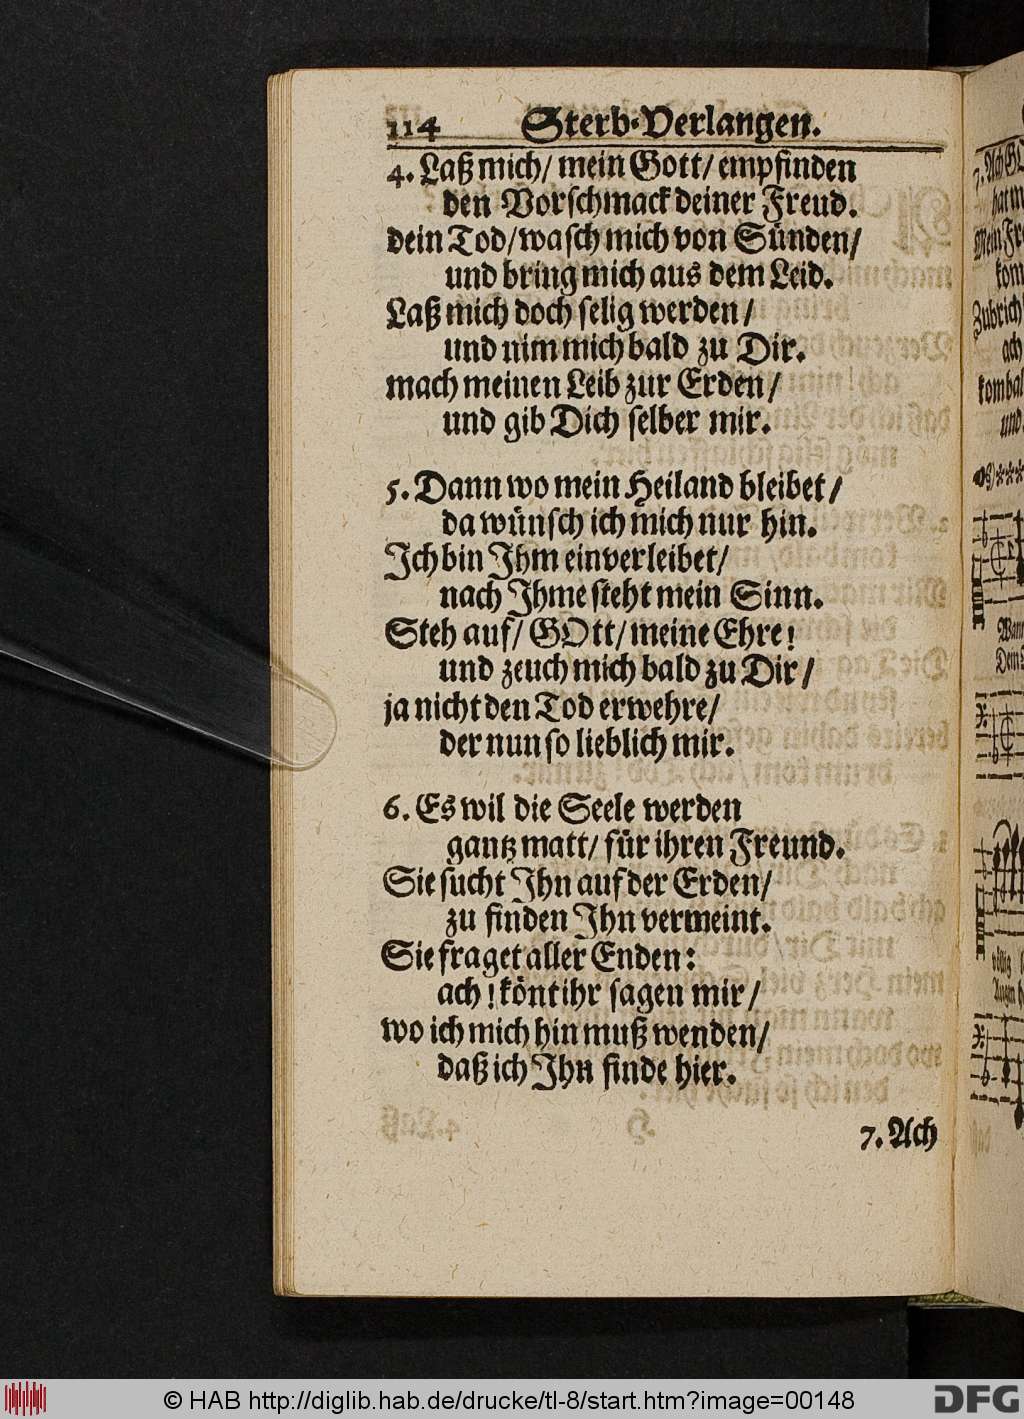 114 Sterb-Verlangen.
4. Laß mich/ mein Gott/ empfinden
den Vorschmack deiner Freud.
dein Tod/ wasch mich von Sünden/
und bring mich aus dem Leid.
Laß mich doch selig werden/
und nim mich bald zu Dir.
mach meinen Leib zur Erden/
und gib Dich selber mir.
5. Dann wo mein Heiland bleibet/
da wünsch ich mich nur hin.
Ich bin Ihm einverleibet/
nach Ihme steht mein Sinn.
Steh auf/ GOtt/ meine Ehre!
und zeuch mich bald zu Dir/
ja nicht den Tod erwehre/
der nun so lieblich mir.
6. Es wil die Seele werden
gantz matt/ für ihren Freund.
Sie sucht Ihn auf der Erden/
zu finden Ihn vermeint.
Sie fraget aller Enden:
ach! könt ihr sagen mir/
wo ich mich hin muß wenden/
daß ich Ihn finde hier.
7. Ach
© HAB http://diglib.hab.de/drucke/tl-8/start.htm?image=00148
DFG